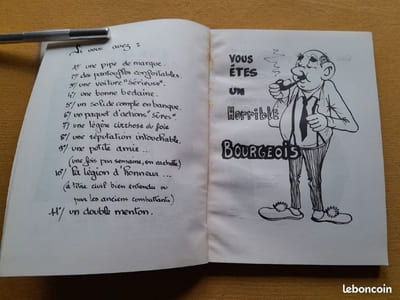 Si vous avez :
1°/ une pipe de marque.
2°/ des pantoufles confortables
3°/ une voiture "Sérieuse".
4°/ une bonne bedaine.
5°/ un solide compte en banque.
6°/ un paquet d'actions "Sûres".
7°/ une légère cirrhose du foie
8°/ une réputation intouchable.
9°/ une petite amie...
(une fois par semaine, en cachette)
10°/ la légion d'honneur...
(à titre civil bien entendu ou
par les anciens combattants)
11°/ un double menton.
VOUS
ÊTES
UN
Horrible
BOURGEOIS
leboncoin